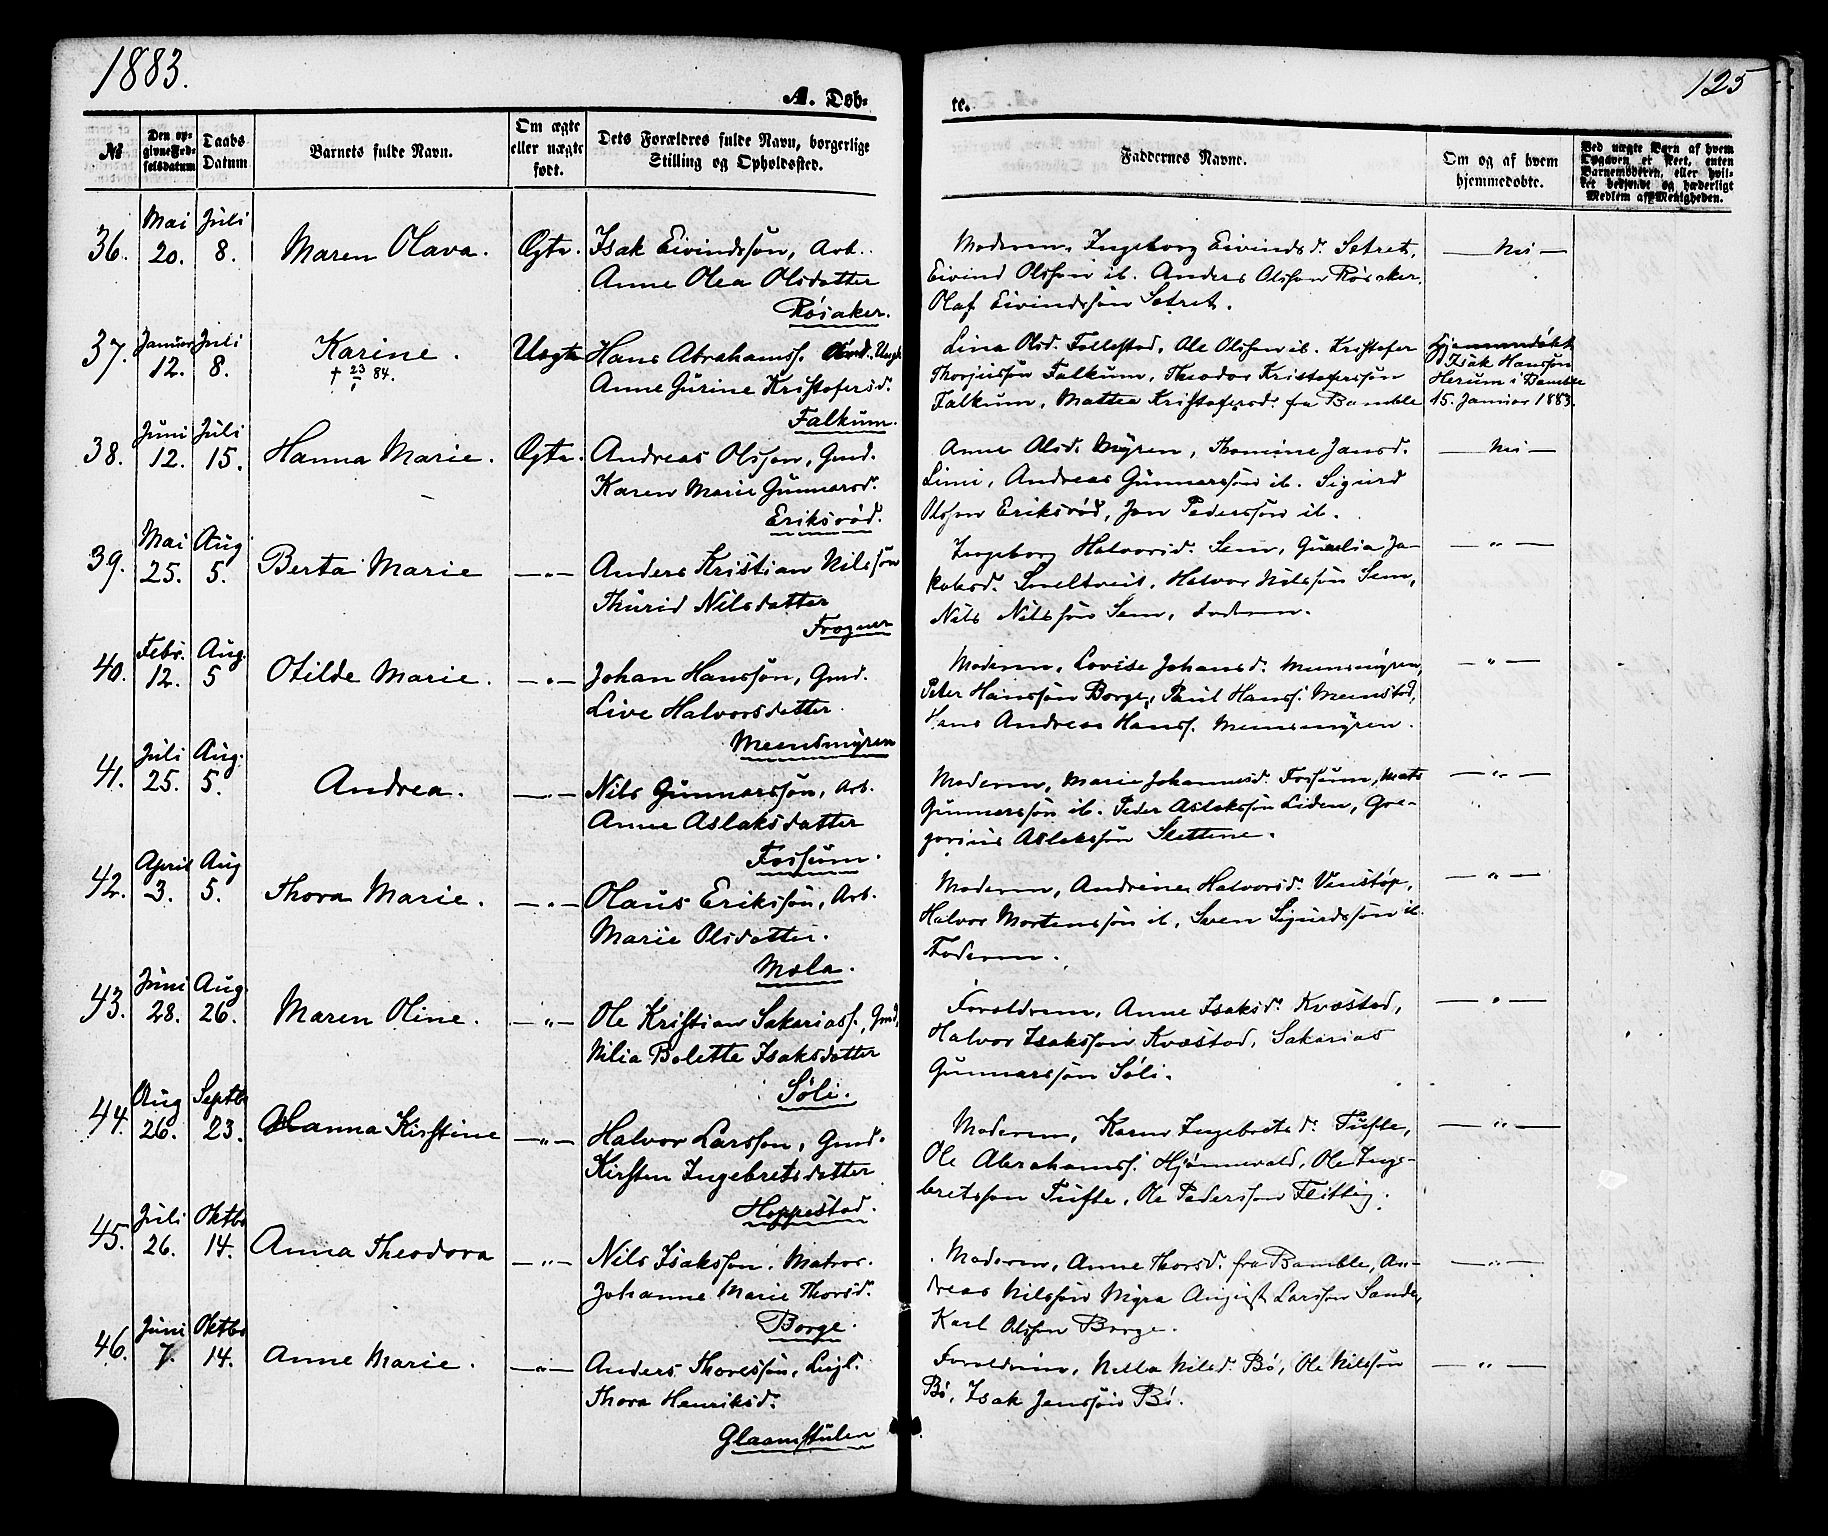 1883.
A. Døb-
te.
125
No
Den op-
givne Fød-
selsdatum
Daabs
Datum
Barnets fulde Navn.
Om ægte
eller uægte
født.
Dets Forældres fulde Navn, borgerlige
Stilling og Opholdssted.
Faddernes Navne.
Om og af hvem
hjemmedøbte.
Ved uægte Barn af hvem
Opgaven er skeet, enten
Barnemoderen, eller hvil-
ket bekjendt og hæderligt
Medlem af Menigheden.
36. Mai 20. Juli 8. Maren Olava. Ægte. Isak Eivindssøn, Arb.
Anne Olea Olsdatter
Røsaker.
Moderen, Ingeborg Eivindsd. Setret,
Eivind Olssøn ib. Anders Olssøn Røsaker,
Olaf Eivindssøn Setret.
— Nei —
37. Januar 12. Juli 8. Karine. Uægte Hans Abrahamss. Ungk.
† 23 84.
Anne Gurine Kristofersd.
Falkum.
Lina Olsd. Follestad, Ole Olssøn ib. Kristofer
Thorjussøn Falkum, Theodor Kristofersson
Falkum, Mattea Kristofersd. fra Bamble
Hjemmedøbt
Isak Hanssøn
Herum i Bamble
15. Januar 1883.
38. Juni 12. Juli 15. Hanna Marie. Ægte. Andreas Olsson, Gmd.
Karen Marie Gunnarsd.
Eriksrød.
Anne Olsd. Myren, Thomine Jansd.
Limi, Andreas Gunnarssøn ib. Sigurd
Olssøn Eriksrød, Jon Pederssøn ib.
— Nei —
39. Mai 25. Aug 5. Berta Marie —"— Anders Kristian Nilssøn
Thurid Nilsdatter
Frogner
Ingeborg Halvorsd. Sem, Gunelia Ja-
kobsd. Smeltveit, Halvor Nilssøn Sem,
Nils Nilssøn Sem, Faderen.
— " —
40. Febr. 12. Aug. 5 Otilde Marie. —"— Johan Hanssøn, Gmd.
Live Halvorsdatter.
Meensmyren
Moderen, Lovise Johansd. Meensmyren,
Peter Hanssøn Borge, Paul Hanss. Meenstad,
Hans Andreas Hanss. Meensmyren.
— " —
41. Juli 25. Aug. 5. Andrea. —"— Nils Gunnarssøn, Arb.
Anne Aslaksdatter
Fossum.
Moderen, Marie Johannesd. Fossum, Mats
Gunnarssøn ib. Peder Aslakssøn Liden, Gre-
gorius Aslakssøn Slettene.
— " —
42. April 3. Aug 5. Thora Marie. —"— Olaus Erikssøn, Arb.
Marie Olsdatter.
Mæla.
Moderen, Andrine Halvorsd. Venstøp,
Halvor Mortenssøn ib, Sven Sigurdssøn ib.
Faderen.
— " —
43. Juni 28. Aug. 26. Maren Oline. —"— Ole Kristian Sakariass., Gmd.
Nilia Bolette Isaksdatter
Søli.
Forældrene, Anne Isaksd. Kvæstad,
Halvor Isakssøn Kvæstad, Sakarias
Gunnarssøn Søli.
— " —
44. Aug 26. Septbr 23. Hanna Kirstine —"— Halvor Larssøn, Gmd.
Kirsten Ingebretsdatter
Hoppestad.
Moderen, Karen Ingebretsd. Tufte,
Ole Abrahamss. Hjønnevald, Ole Inge-
bretssøn Tufte, Ole Pederssøn Flittig.
— " —
45. Juli 26. Oktbr 14. Anna Theodora —"— Nils Isakssøn, Matros.
Johanne Marie Thorsd.
Borge.
Moderen, Anne Thorsd. fra Bamble, An-
dreas Nilssøn Myra August Larssøn Sande,
Karl Olssøn Borge.
— " —
46. Juni 7. Oktbr 14. Anne Marie. —"— Anders Thoressøn, Leigl.
Thora Henriksd.
Glaamstulen
Forældrene, Nella Nilsd. Bø, Ole Nilssøn
Bø, Isak Jenssøn Bø.
— " —